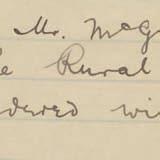 Mr. McG
Rural
dered wi